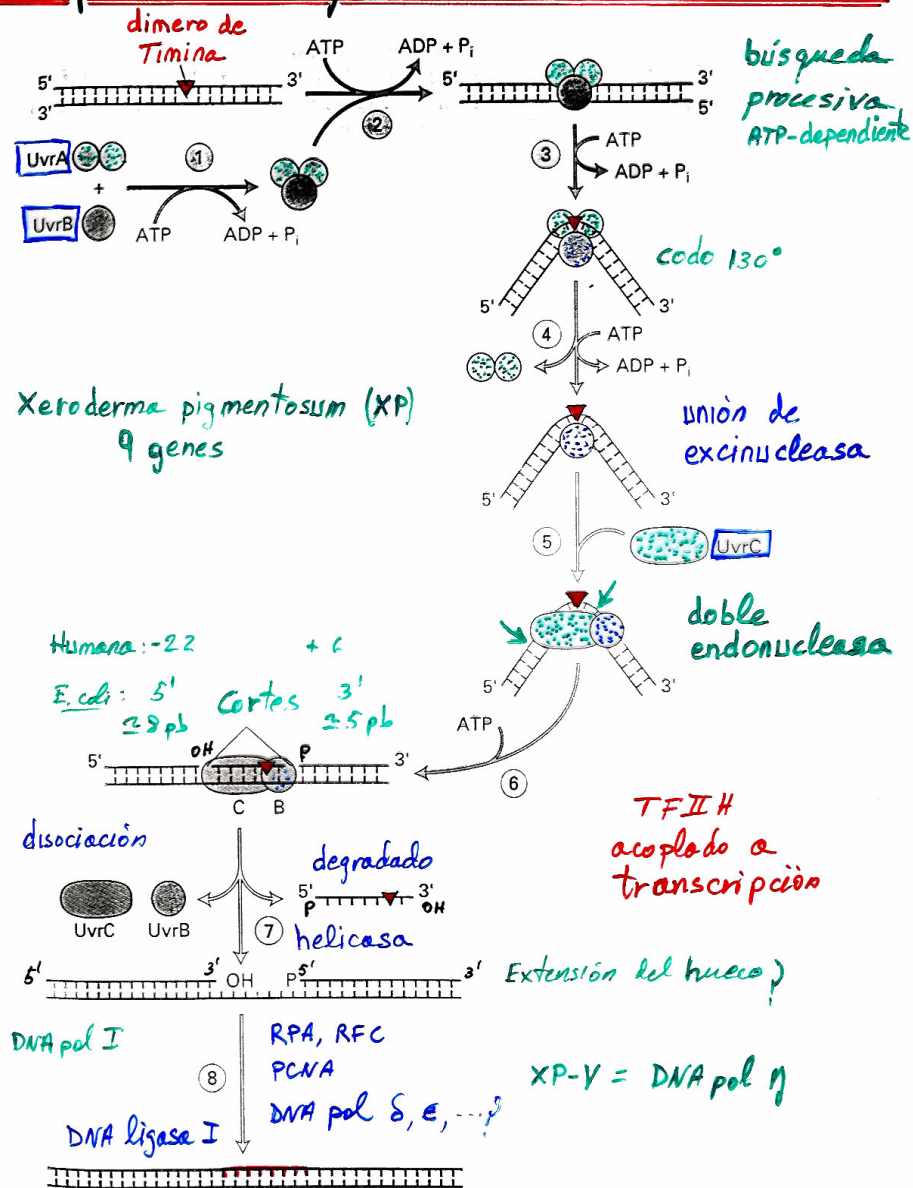 dimero de
Timina
ATP
ADP + Pi
5'
3'
3'
5'
3'
5'
búsqueda
procesiva
ATP-dependiente
2
UvrA
+
UvrB
1
ATP
ADP + Pi
3
ATP
ADP + Pi
codo 130°
5'
3'
4
ATP
ADP + Pi
Xeroderma pigmentosum (XP)
9 genes
unión de
excinucleasa
5'
3'
5
UvrC
doble
endonucleasa
5'
3'
Humana: -22
E. coli: 5' Cortes 3'
≃8 pb ≃5 pb
ATP
6
5'
OH
P
3'
C B
TFIIH
acoplado a
transcripción
disociación
degradado
5' 3'
P OH
UvrC UvrB
7
helicasa
5' 3' OH P 5' 3'
Extensión del hueco?
DNA pol I
RPA, RFC
PCNA
DNA pol δ, ε, ...?
8
XP-V = DNA pol η
DNA ligasa I